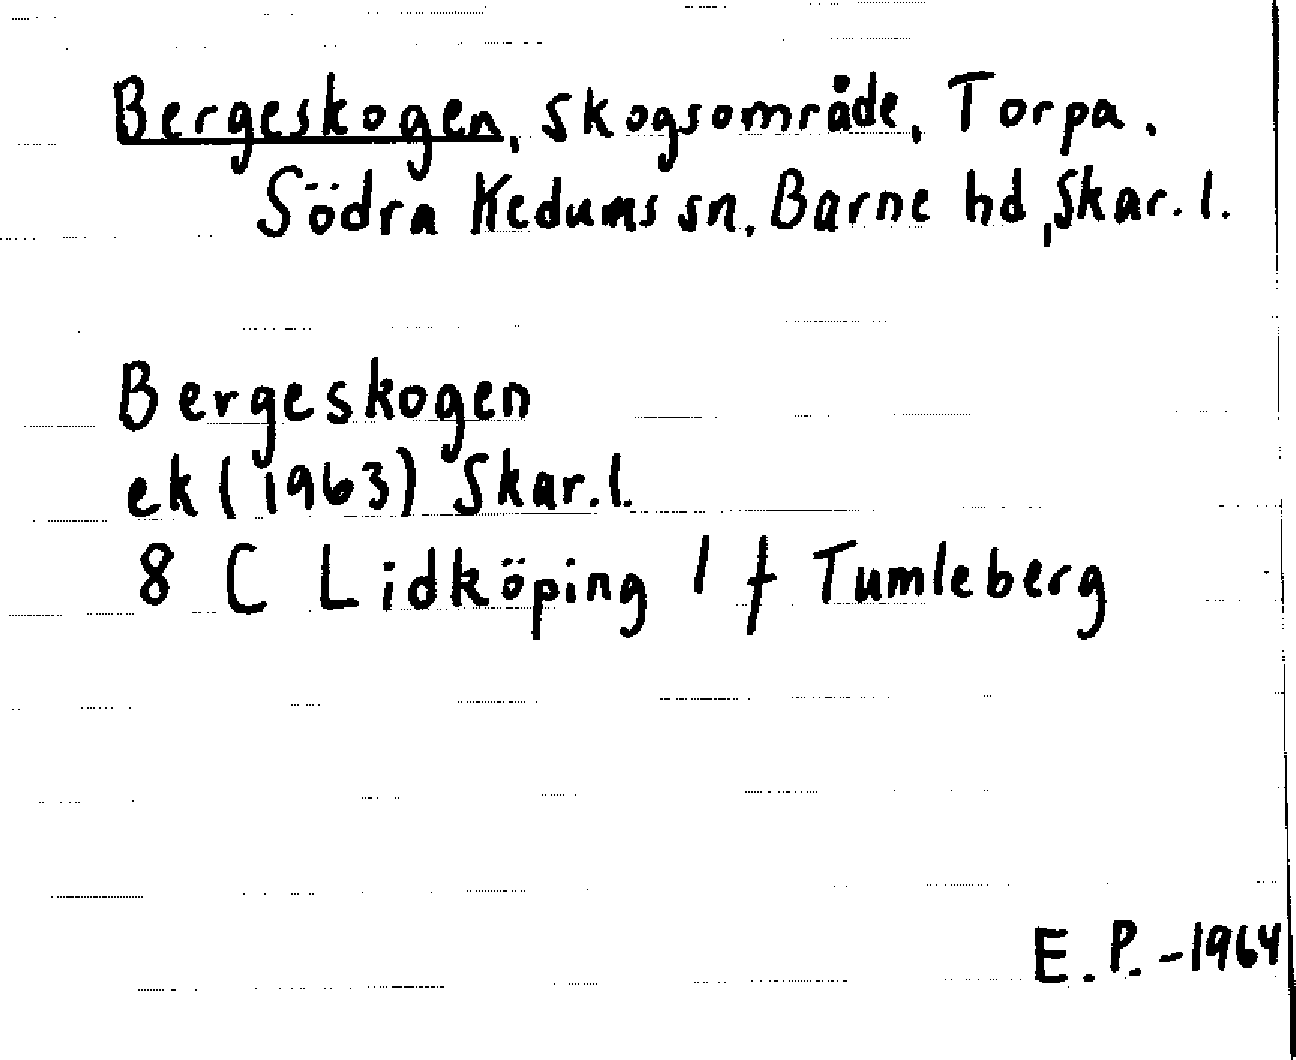 Bergeskogen, skogsområde, Torpa,
Södra Kedums sn, Barne hd, Skar. l.
Bergeskogen
ek (1963) Skar. l.
8 C Lidköping 1 f Tumleberg
E. P. -1964